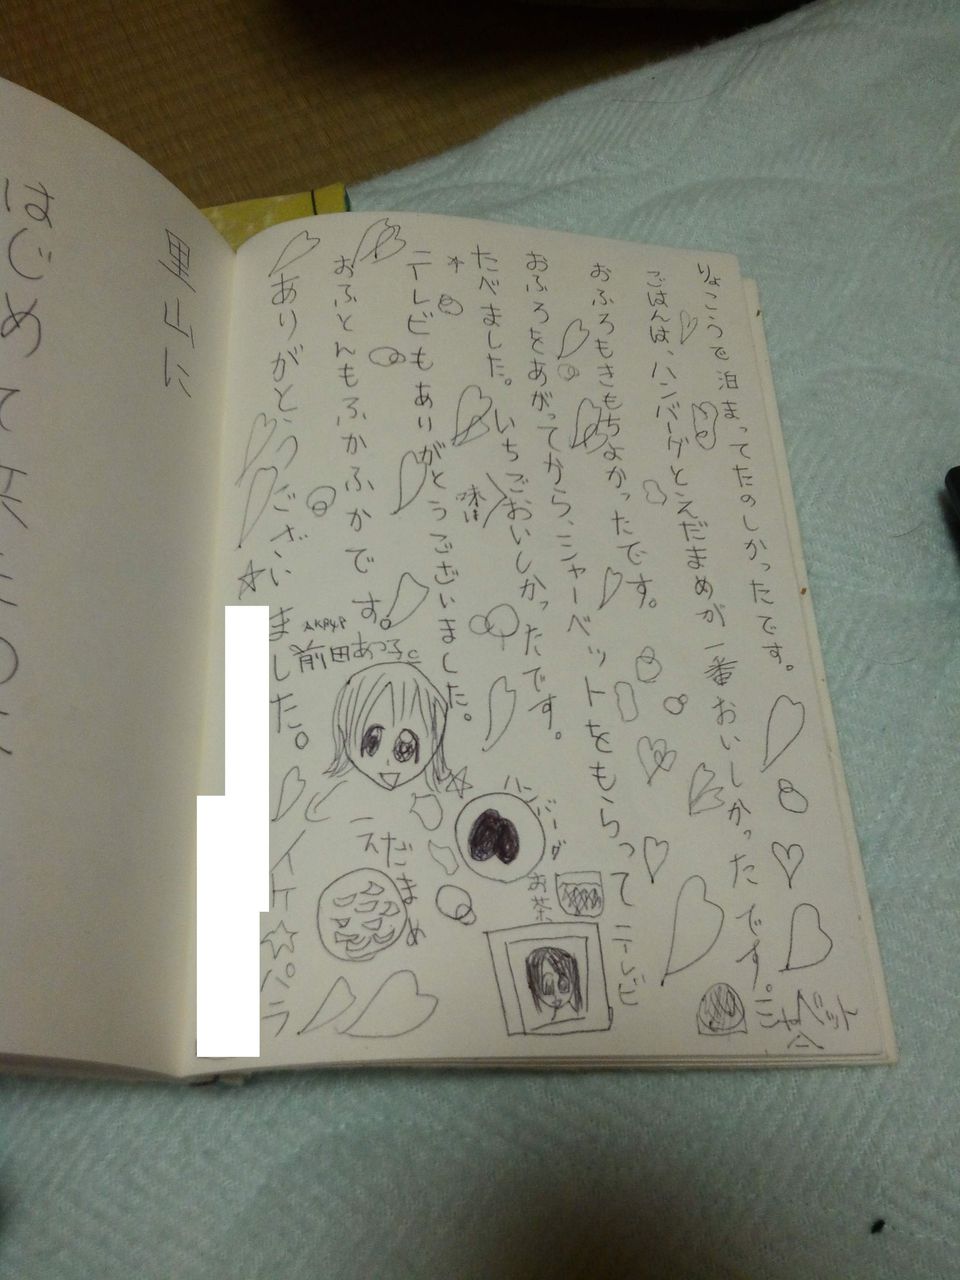 りょこうで泊まってたのしかったです。
ごはんは、ハンバーグとえだまめが一番おいしかったです。
おふろもきもちよかったです。
おふろをあがってから、シャーベットをもらって
たべました。いちごおいしかったです。
味は
テレビもありがとうございました。
おふとんもふかふかです。
ありがとうございました。
AKB48
前田あつ子
ハンバーグ
えだまめ
お茶
テレビ
シャーベット
イケ☆パラ
里山に
はじめて